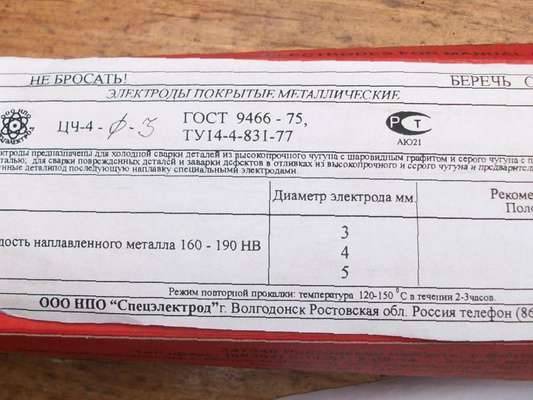 НЕ БРОСАТЬ!
БЕРЕЧЬ
ЭЛЕКТРОДЫ ПОКРЫТЫЕ МЕТАЛЛИЧЕСКИЕ
ЦЧ-4 -Ф-3
ГОСТ 9466 - 75,
ТУ14-4-831-77
РСТ
АЮ21
предназначены для холодной сварки деталей из высокопрочного чугуна с шаровидным графитом и серого чугуна с
сталью; для сварки поврежденных деталей и заварки дефектов в отливках из высокопрочного и серого чугуна и
под последующую наплавку специальными электродами
Диаметр электрода мм.
наплавленного металла 160 - 190 НВ
3
4
5
Режим повторной прокалки: температура 120-150 °С в течении 2-3часов.
ООО НПО “Спецэлектрод” г. Волгодонск Ростовская обл. Россия телефон (86